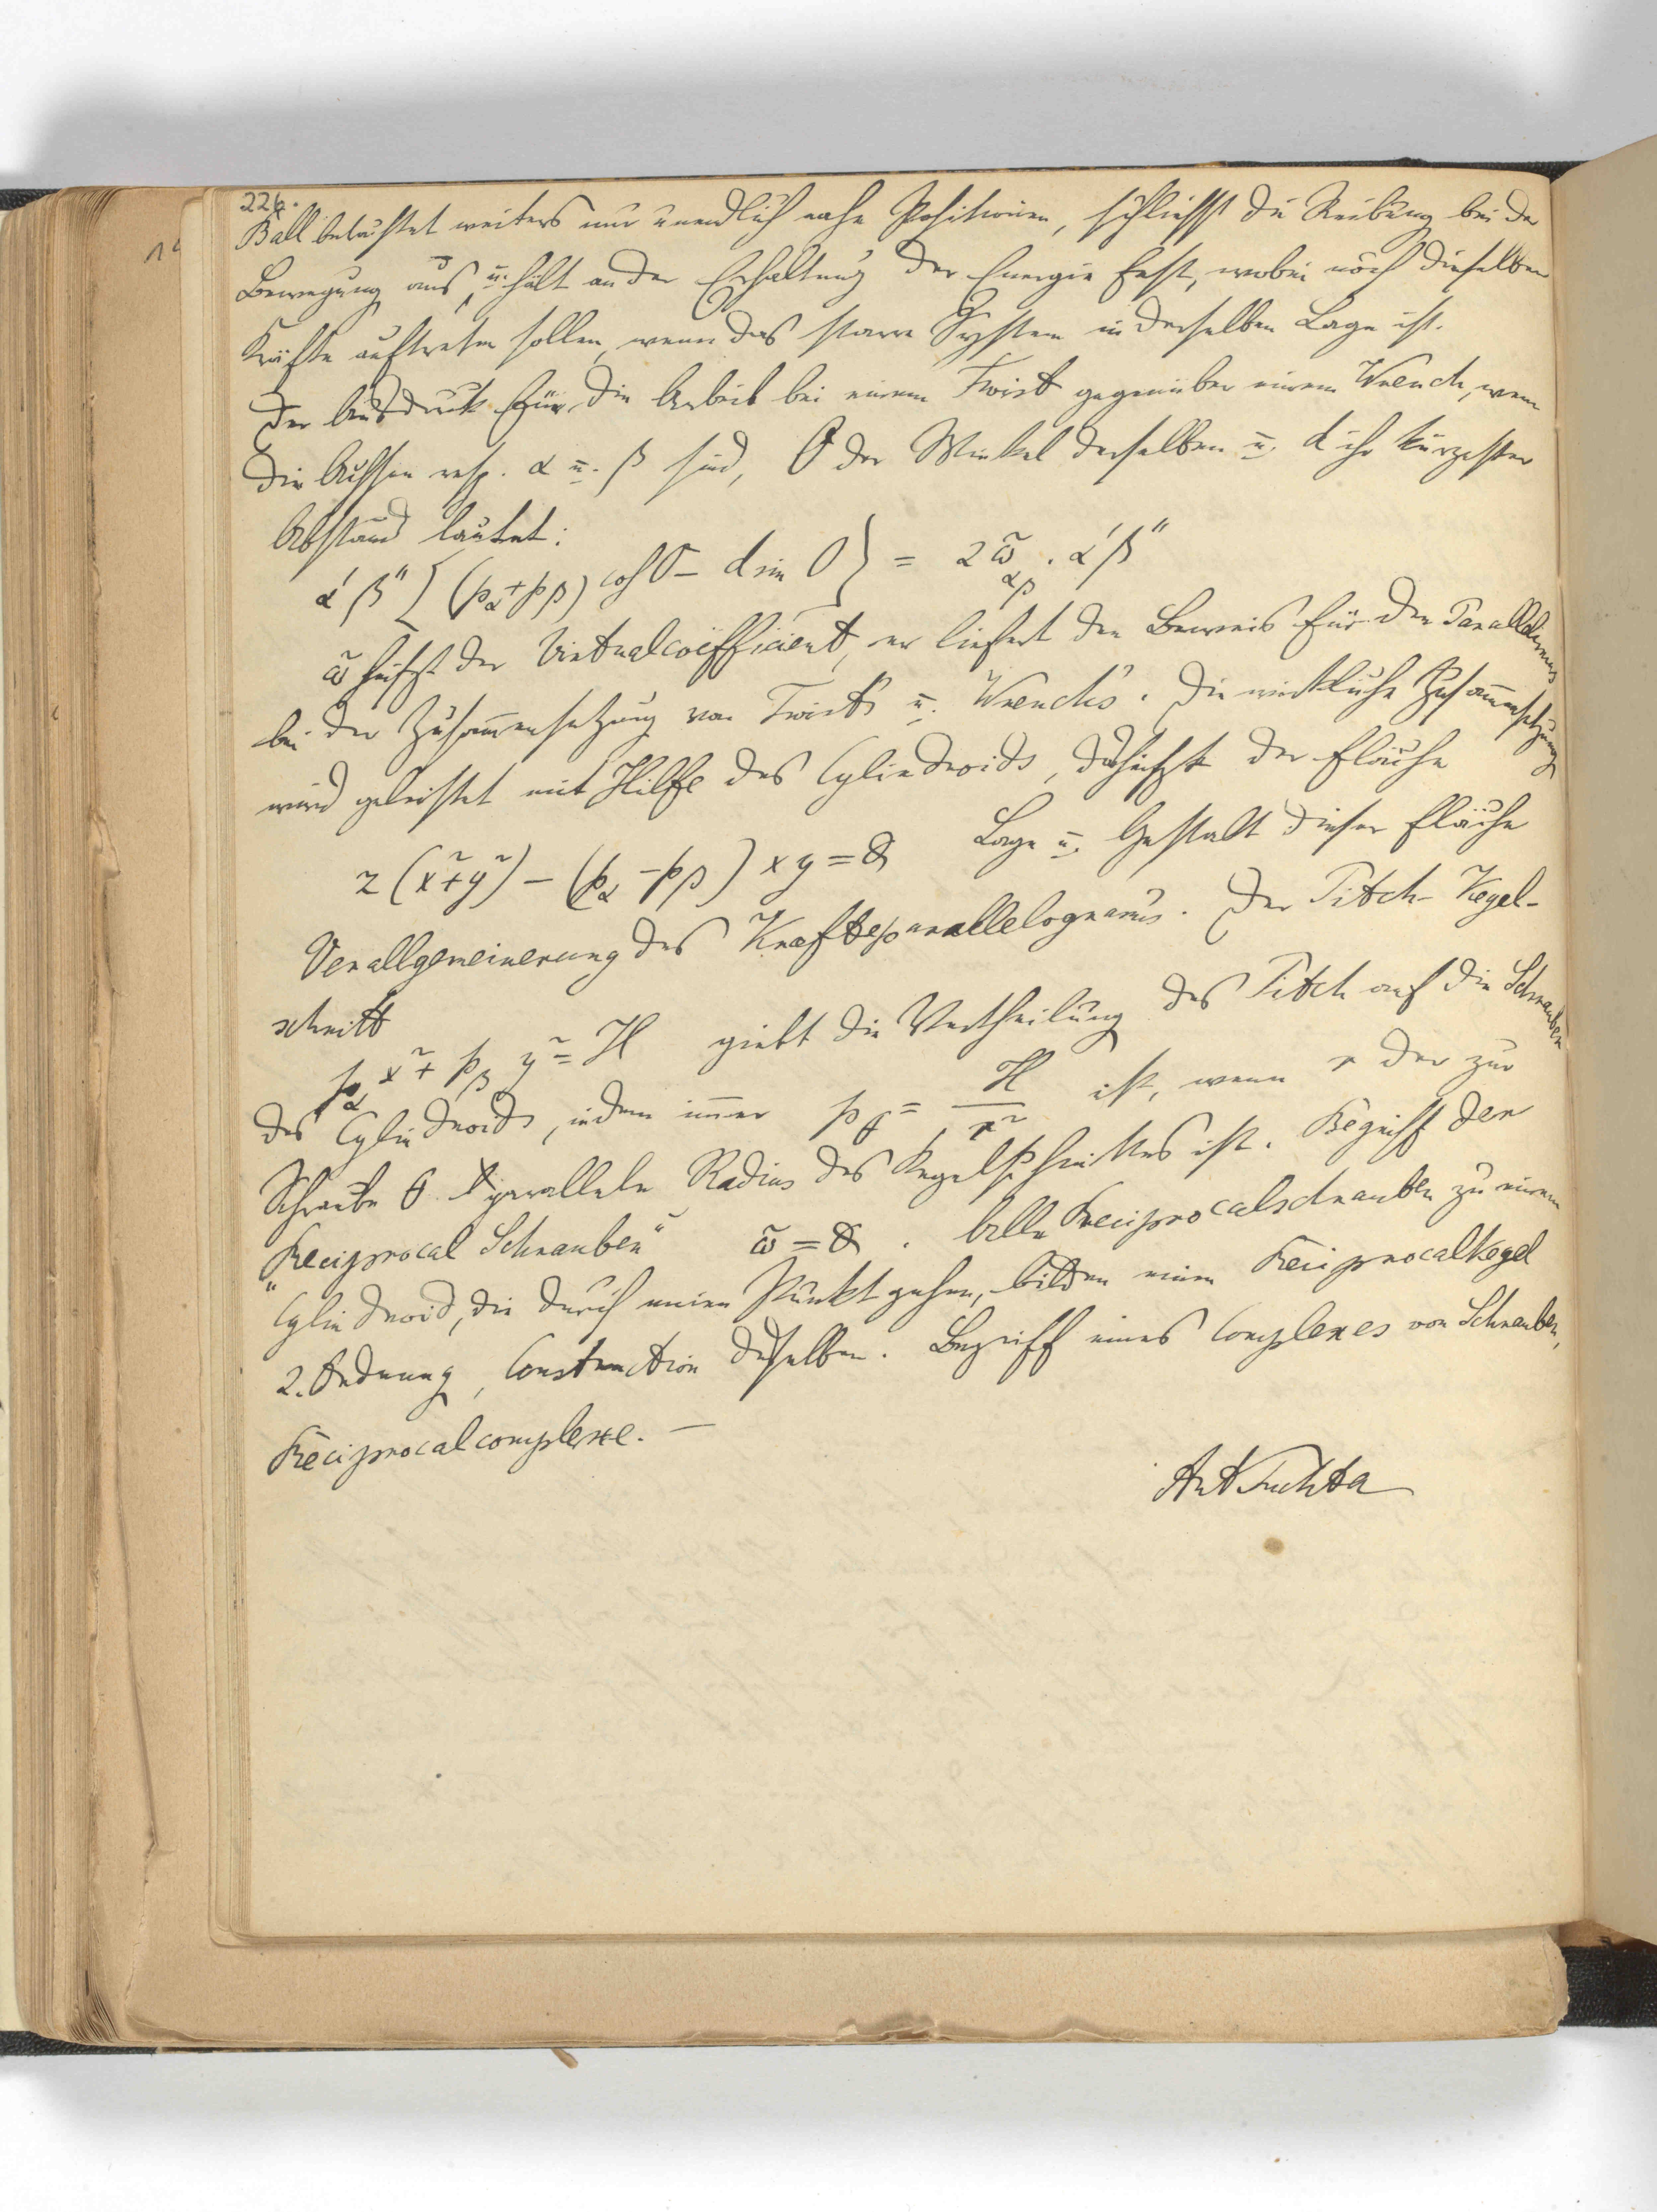 226.
Ball betrachtet weiters nur unendlich nahe Positionen, schliesst die Reibung bei der
Bewegung aus, u. hält an der Erhaltung der Energie fest, wobei noch dieselben
Kräfte auftreten sollen, wenn das starre System in derselben Lage ist.
Der Ausdruck für die Arbeit bei einem Twist gegenüber einem Wrench, wenn
die Achsen resp. α u. β sind, O der Winkel derselben u. d ihr kürzester
Abstand lautet:
α' β'' [(p_α + p_β) cos O − d sin O} = 2 ῶ_αβ · α' β''
ῶ heisst der Virtualcoëfficient, er liefert den Beweis für den Parallelismus
bei der Zusammensetzung von Twist's u. Wrench's. Die wirkliche Zusammensetzung
wird geleistet mit Hilfe des Cylindroids, das heisst der Fläche
z (x² + y²) − (p_α − p_β) xy = 0 Lage u. Gestalt dieser Fläche
Verallgemeinerung des Kräfteparallelogramms. Der Pitch-Kegel-
schnitt
p_α x² + p_β y² = H giebt die Vertheilung des Pitch auf die Schrauben
des Cylindroids, indem immer p_θ = H/r² ist, wenn r der zur
Schraube θ parallele Radius des Kegelschnittes ist. Begriff der
"Reciprocal Schrauben" ῶ = 0. Alle Reciprocalschrauben zu einem
Cylindroid, die durch einen Punkt gehen, bilden einen Reciprocalkegel
2. Ordnung, Construction desselben. Begriff eines Complexes von Schrauben,
Reciprocalcomplexe. —
Ant Puchta